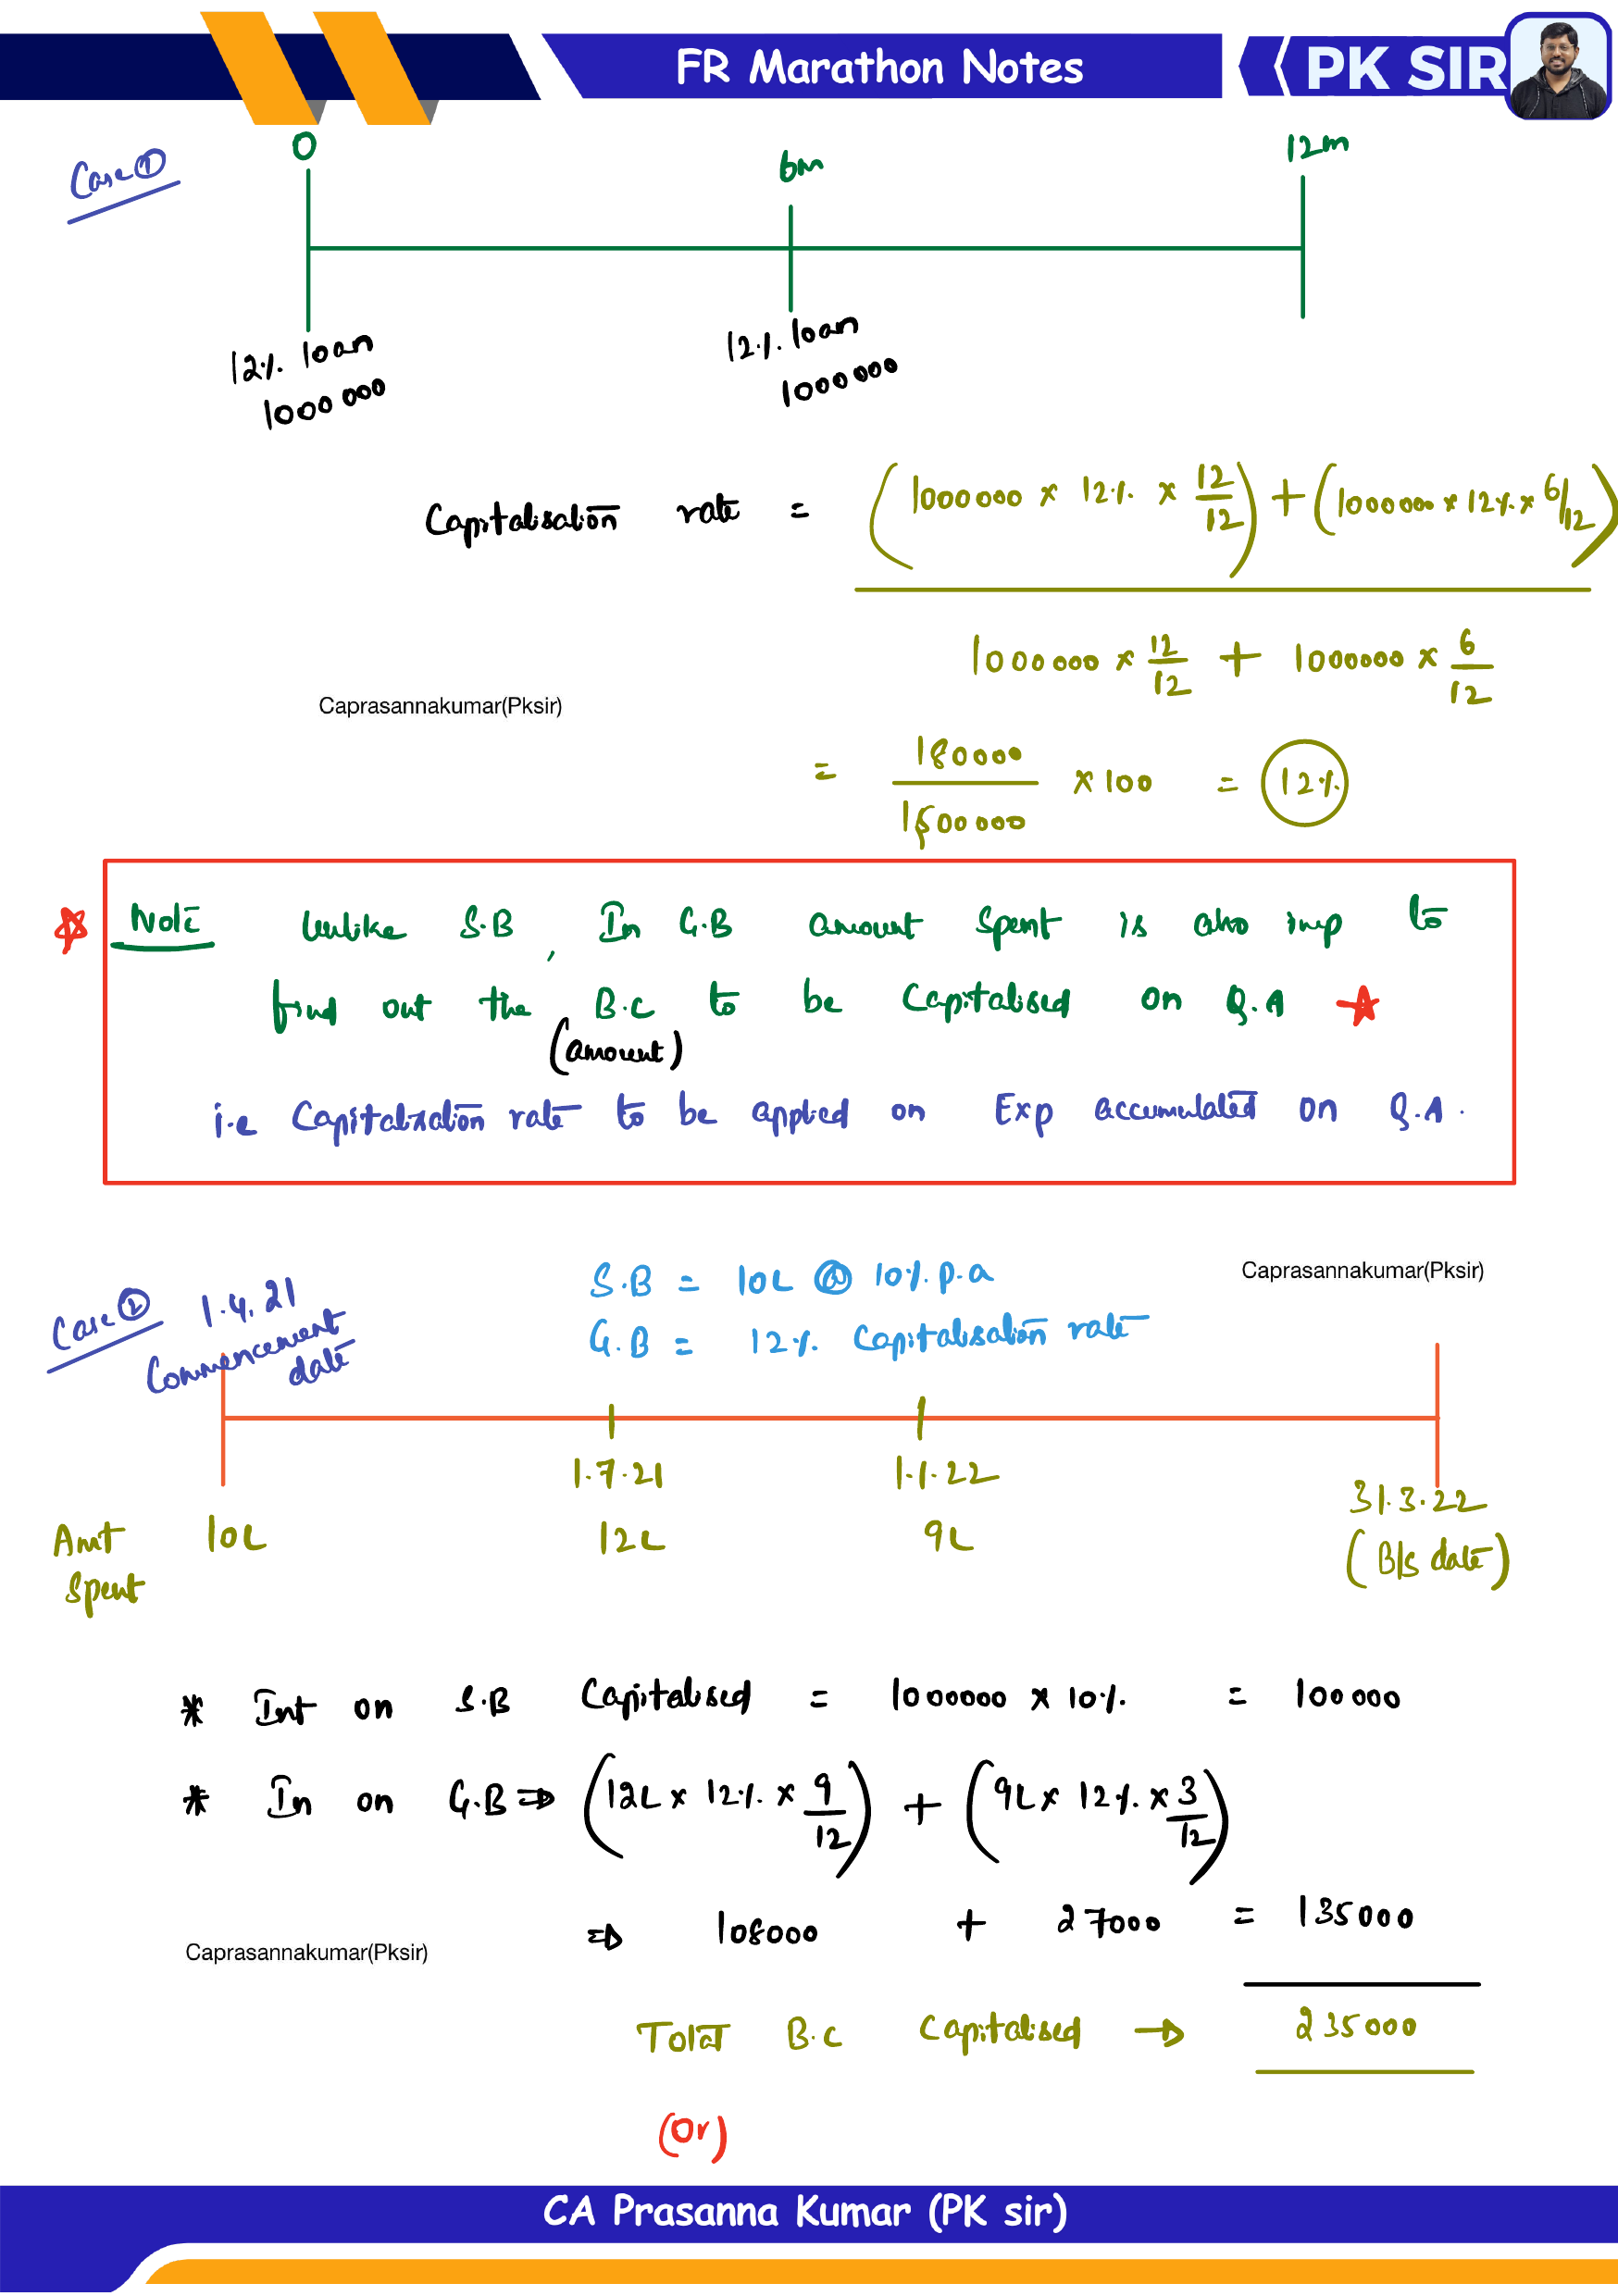 FR Marathon Notes
PK SIR
Case ①
0
6m
12m
12% loan
1000000
12% loan
1000000
Capitalisation rate = (1000000 × 12% × 12/12) + (1000000 × 12% × 6/12)
1000000 × 12/12 + 1000000 × 6/12
Caprasannakumar(Pksir)
= 180000/1500000 × 100 = 12%
Note Unlike S.B, In G.B amount spent is also imp to
find out the B.C to be Capitalised on Q.A
(amount)
i.e Capitalisation rate to be applied on Exp accumulated on Q.A.
Caprasannakumar(Pksir)
Case ② 1.4.21
Commencement
date
S.B = 10L @ 10% p.a
G.B = 12% Capitalisation rate
1.7.21
1.1.22
31.3.22
(B/s date)
Amt
Spent
10L
12L
9L
* Int on S.B Capitalised = 1000000 × 10% = 100000
* In on G.B ⇒ (12L × 12% × 9/12) + (9L × 12% × 3/12)
⇒ 108000 + 27000 = 135000
Caprasannakumar(Pksir)
Total B.C Capitalised → 235000
(or)
CA Prasanna Kumar (PK sir)